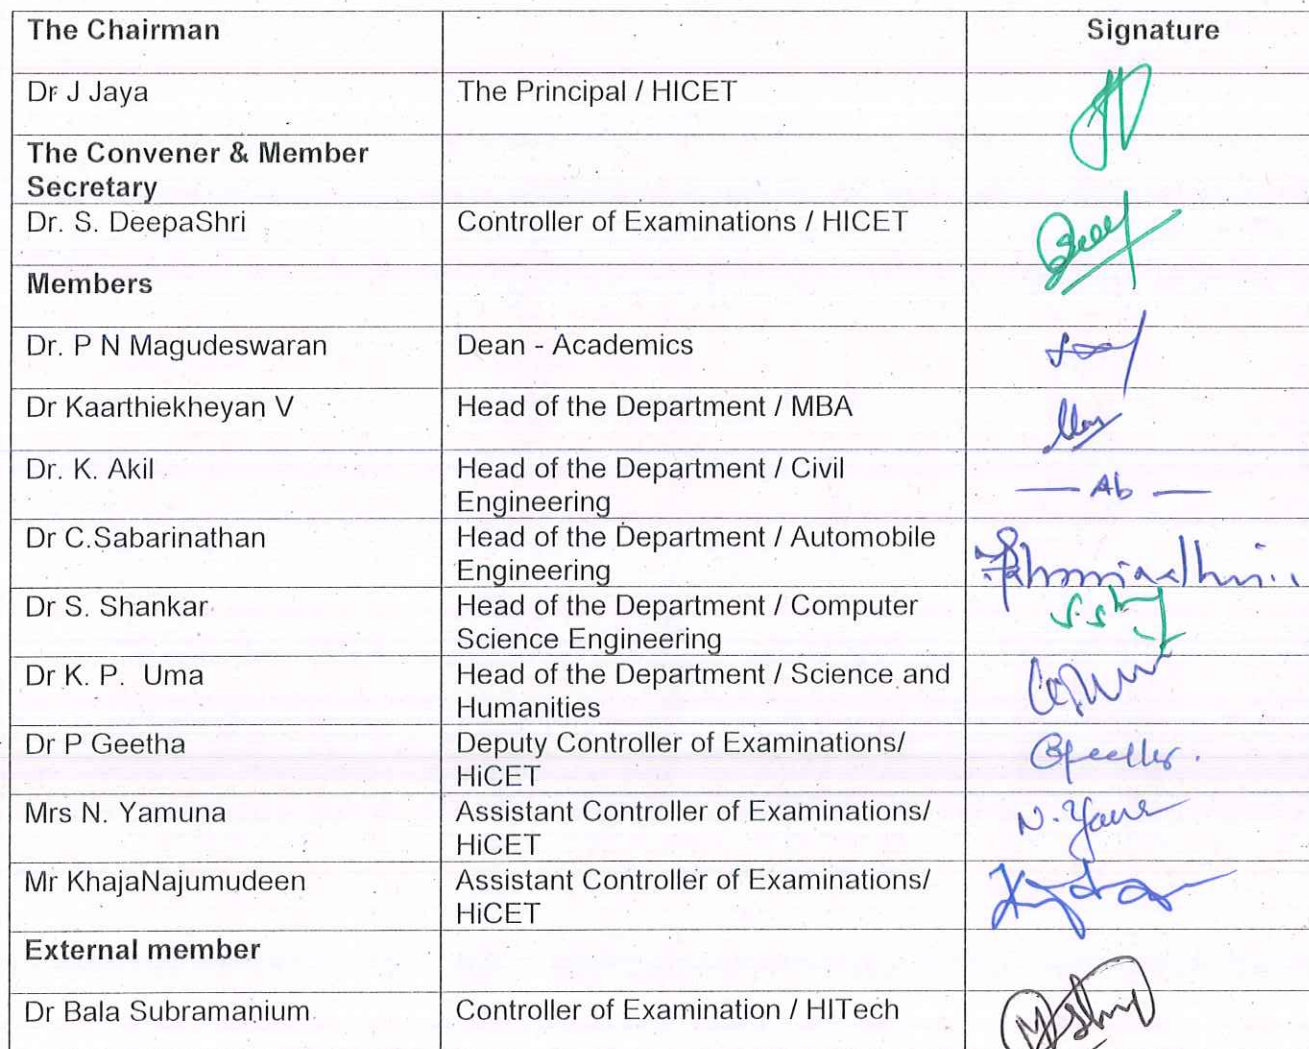 The Chairman Signature
Dr J Jaya The Principal / HICET
The Convener & Member
Secretary
Dr. S. DeepaShri Controller of Examinations / HICET
Members
Dr. P N Magudeswaran Dean - Academics
Dr Kaarthiekheyan V Head of the Department / MBA
Dr. K. Akil Head of the Department / Civil
Engineering
— Ab —
Dr C.Sabarinathan Head of the Department / Automobile
Engineering
Dr S. Shankar Head of the Department / Computer
Science Engineering
Dr K. P. Uma Head of the Department / Science and
Humanities
Dr P Geetha Deputy Controller of Examinations/
HiCET
Mrs N. Yamuna Assistant Controller of Examinations/
HiCET
Mr KhajaNajumudeen Assistant Controller of Examinations/
HiCET
External member
Dr Bala Subramanium Controller of Examination / HITech